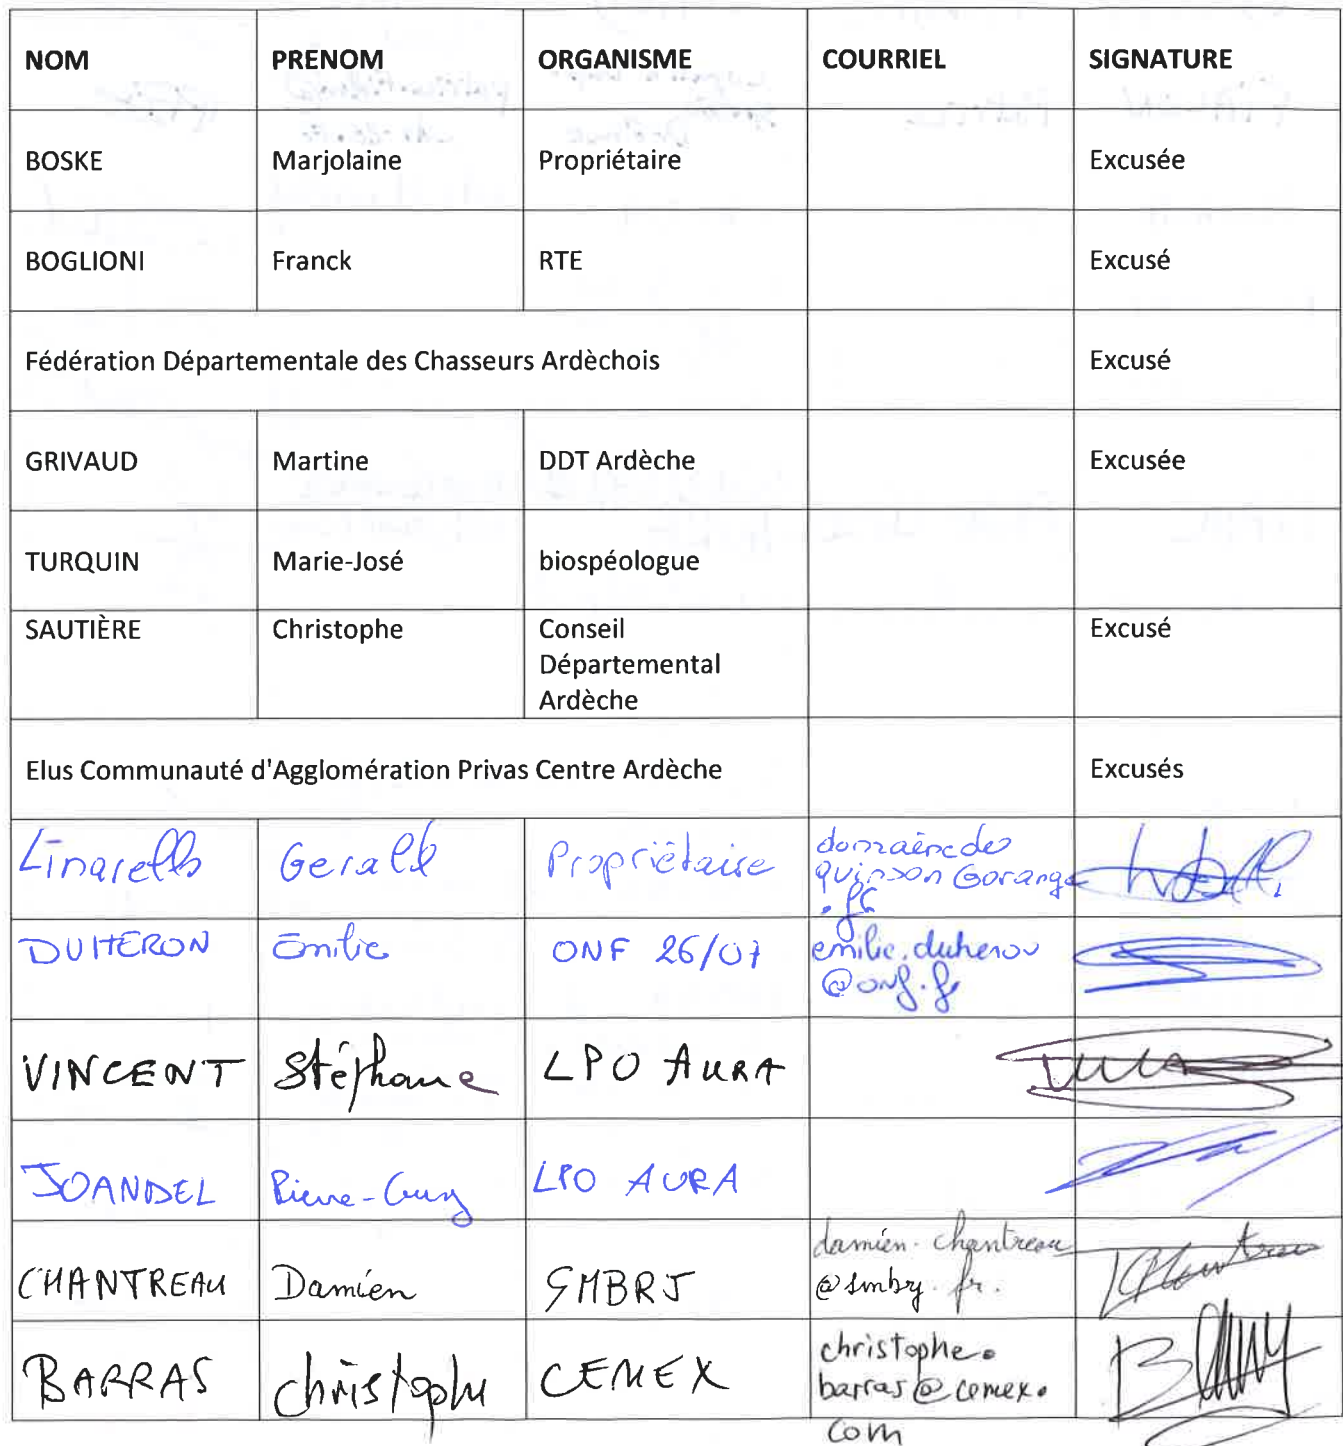 NOM PRENOM ORGANISME COURRIEL SIGNATURE
BOSKE Marjolaine Propriétaire Excusée
BOGLIONI Franck RTE Excusé
Fédération Départementale des Chasseurs Ardèchois Excusé
GRIVAUD Martine DDT Ardèche Excusée
TURQUIN Marie-José biospéologue
SAUTIÈRE Christophe Conseil Excusé
Départemental
Ardèche
Elus Communauté d'Agglomération Privas Centre Ardèche Excusés
Gerald Propriétaire domaine de
quinson @orange
.fr
DUHERON Emilie ONF 26/07 emilie.duheron
@onf.fr
VINCENT Stéphane LPO AURA
JOANDEL Pierre-Guy LPO AURA
CHANTREAU Damien SMBRJ damien.chantreau
@smbrj.fr.
BARRAS christophe CEMEX christophe.
barras@cemex.
com